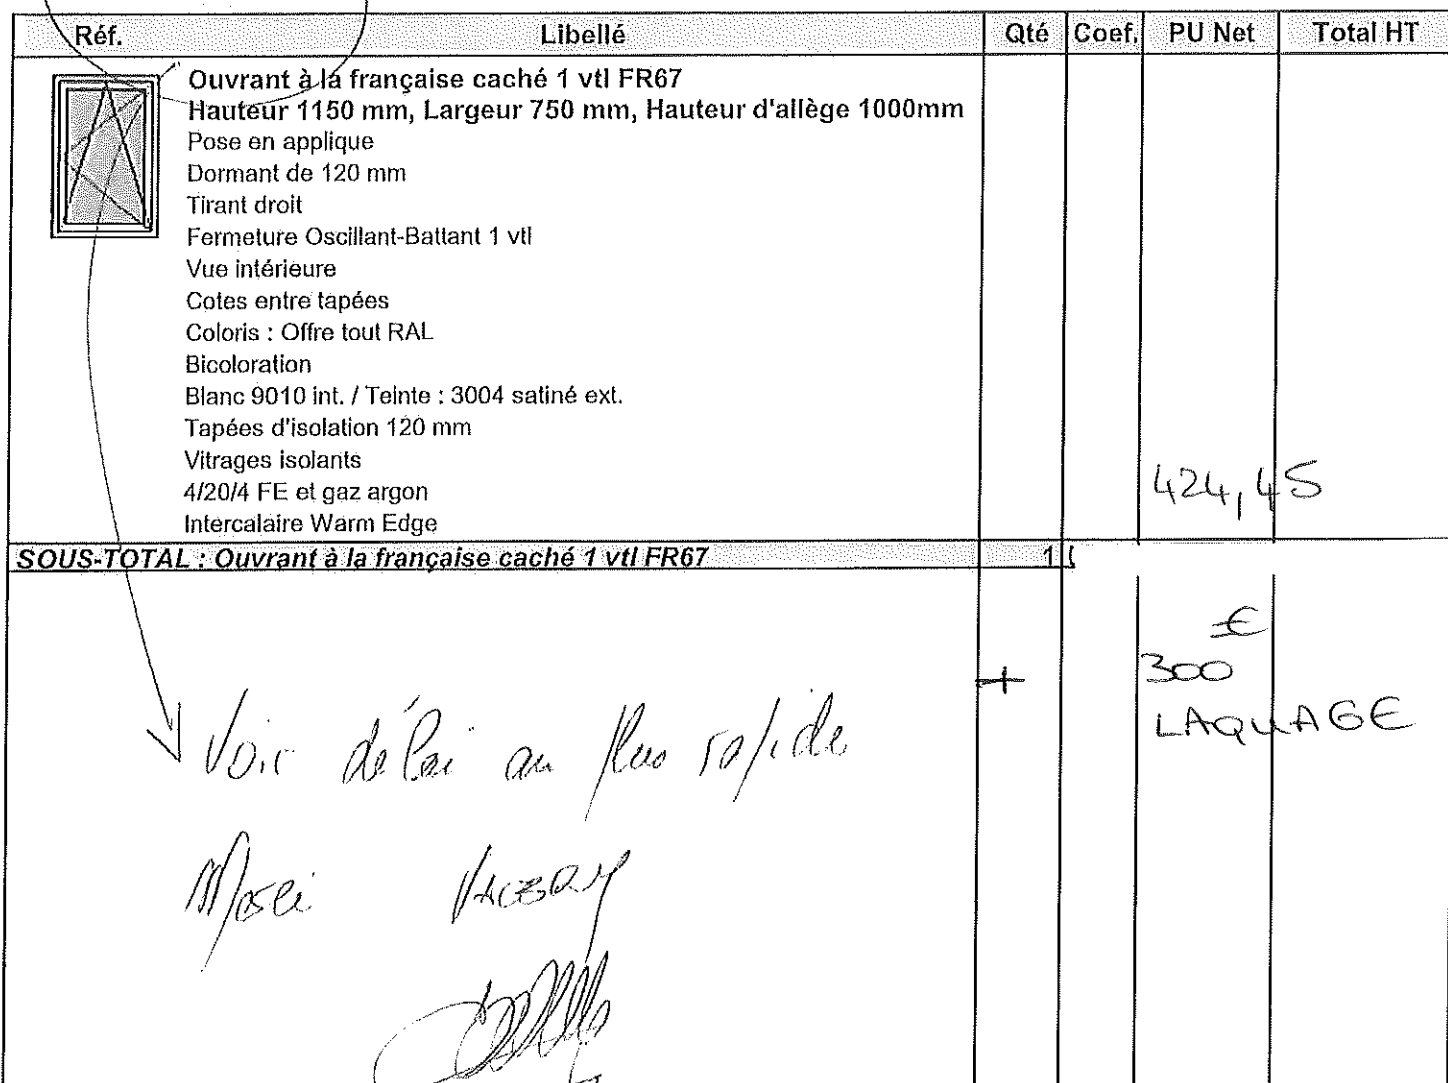 Réf. Libellé Qté Coef. PU Net Total HT
Ouvrant à la française caché 1 vtl FR67
Hauteur 1150 mm, Largeur 750 mm, Hauteur d'allège 1000mm
Pose en applique
Dormant de 120 mm
Tirant droit
Fermeture Oscillant-Battant 1 vtl
Vue intérieure
Cotes entre tapées
Coloris : Offre tout RAL
Bicoloration
Blanc 9010 int. / Teinte : 3004 satiné ext.
Tapées d'isolation 120 mm
Vitrages isolants
4/20/4 FE et gaz argon
424,45
Intercalaire Warm Edge
SOUS-TOTAL : Ouvrant à la française caché 1 vtl FR67 1
€
+ 300
LAQUAGE
Voir délai au plus rapide